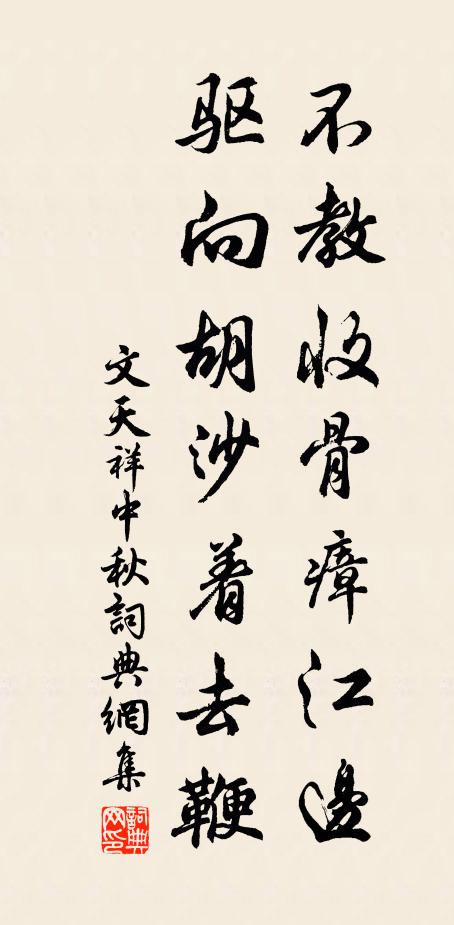 不教收骨瘴江邊
驱向胡沙着去鞭
文天祥中秋詞典網集
詞典
网印